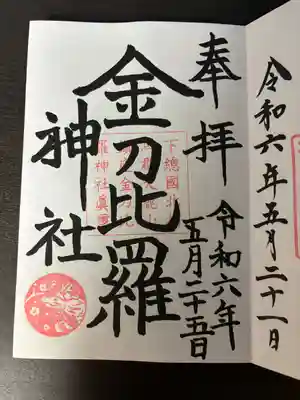 令和六年五月二十一日
奉拝
令和六年
五月二十五日
金刀比羅
神社
下總國北